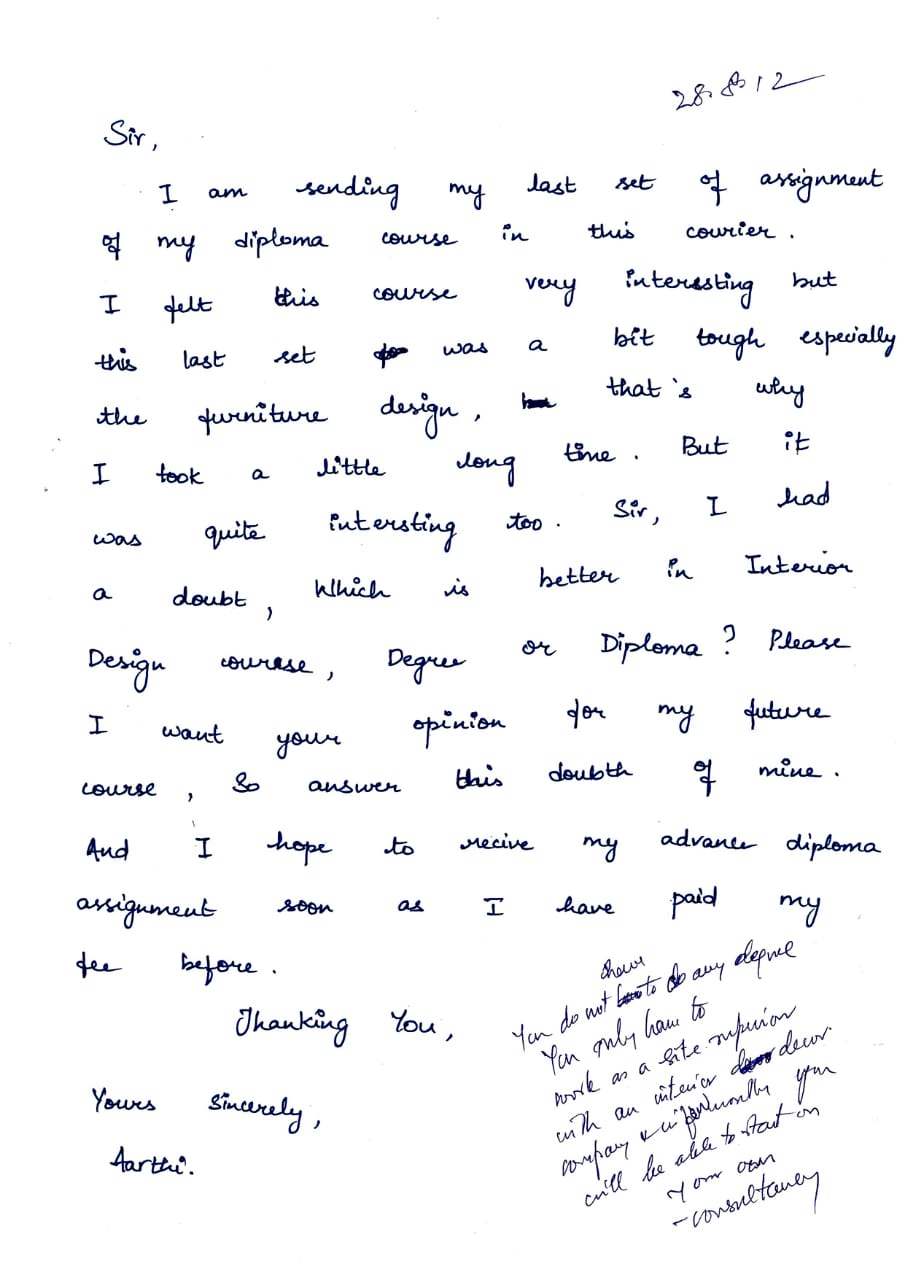 28.8.12
Sir,
I am sending my last set of assignment
of my diploma course in this courier.
I felt this course very interssting but
this last set was a bit tough especially
the furniture design, that's why
I took a little long time. But it
was quite intersting too. Sir, I had
a doubt, Which is better in Interior
Design courese, Degree or Diploma? Please
I want your opinion for my future
course, So answer this doubth of mine.
And I hope to recive my advance diploma
assignment soon as I have paid my
fee before.
Thanking You,
Yours Sincerely,
Aarthi.
have
You do not to do any degree
You only have to
work as a site superior
with an interior decor
company & in few months you
will be able to start on
your own
- consultancy